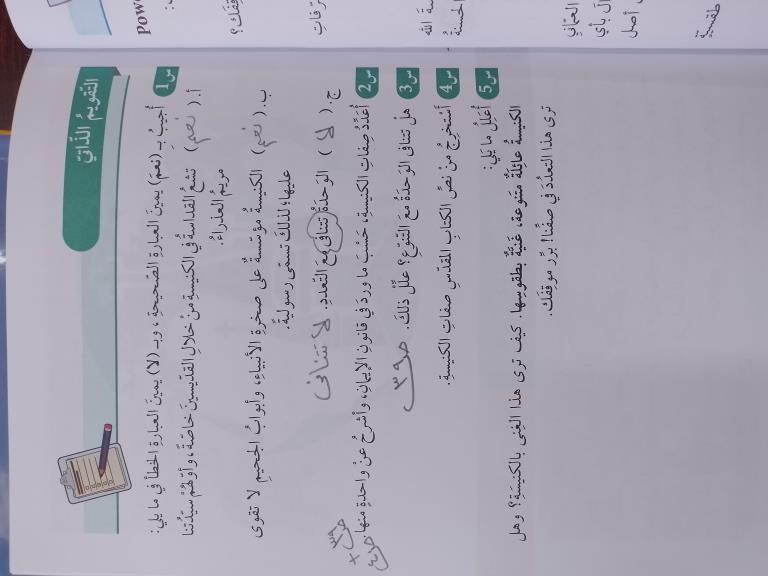 التّقويمُ الذّاتيّ
س1 أُجيبُ بِـ (نعمْ) يمينَ العبارةِ الصّحيحةِ، وبـ (لا) يمينَ العبارةِ الخطأِ في ما يلي:
أ. ( نعم ) تشعُّ القداسةُ في الكنيسةِ منْ خلالِ القدّيسينَ خاصّةً، وأوّلهُمْ سيّدتُنا
مريمُ العذراءُ.
ب. ( نعم ) الكنيسةُ مؤسّسةٌ على صخرةِ الأنبياءِ، وأبوابُ الجحيمِ لا تقوى
عليها؛ لذلكَ تسمّى رسوليةً.
ج. ( لا ) الوَحدةُ تتنافى معَ التعددِ. لا تتنافى
س2 أُعَدِّدُ صِفاتِ الكنيسةِ، حَسْبَ ما وردَ في قانونِ الإيمانِ، وأشرحُ عنْ واحدةٍ منها.
س3 هلْ تتنافى الوَحدةُ معَ التنوّعِ؟ علّلْ ذلكَ. ص ٣
س4 أستخرِجُ منْ نصِّ الكتابِ المقدّسِ صفاتِ الكنيسةِ.
س5 أُعَلِّلُ ما يَلي:
الكنيسةُ عائلةٌ متنوّعة، غَنيّةٌ بطقوسِها. كيف ترى هذا الغِنى بالكنيسَةِ؟ وهل
ترى هذا التعدّدَ في صفّنا! برِّر موقِفَكَ.